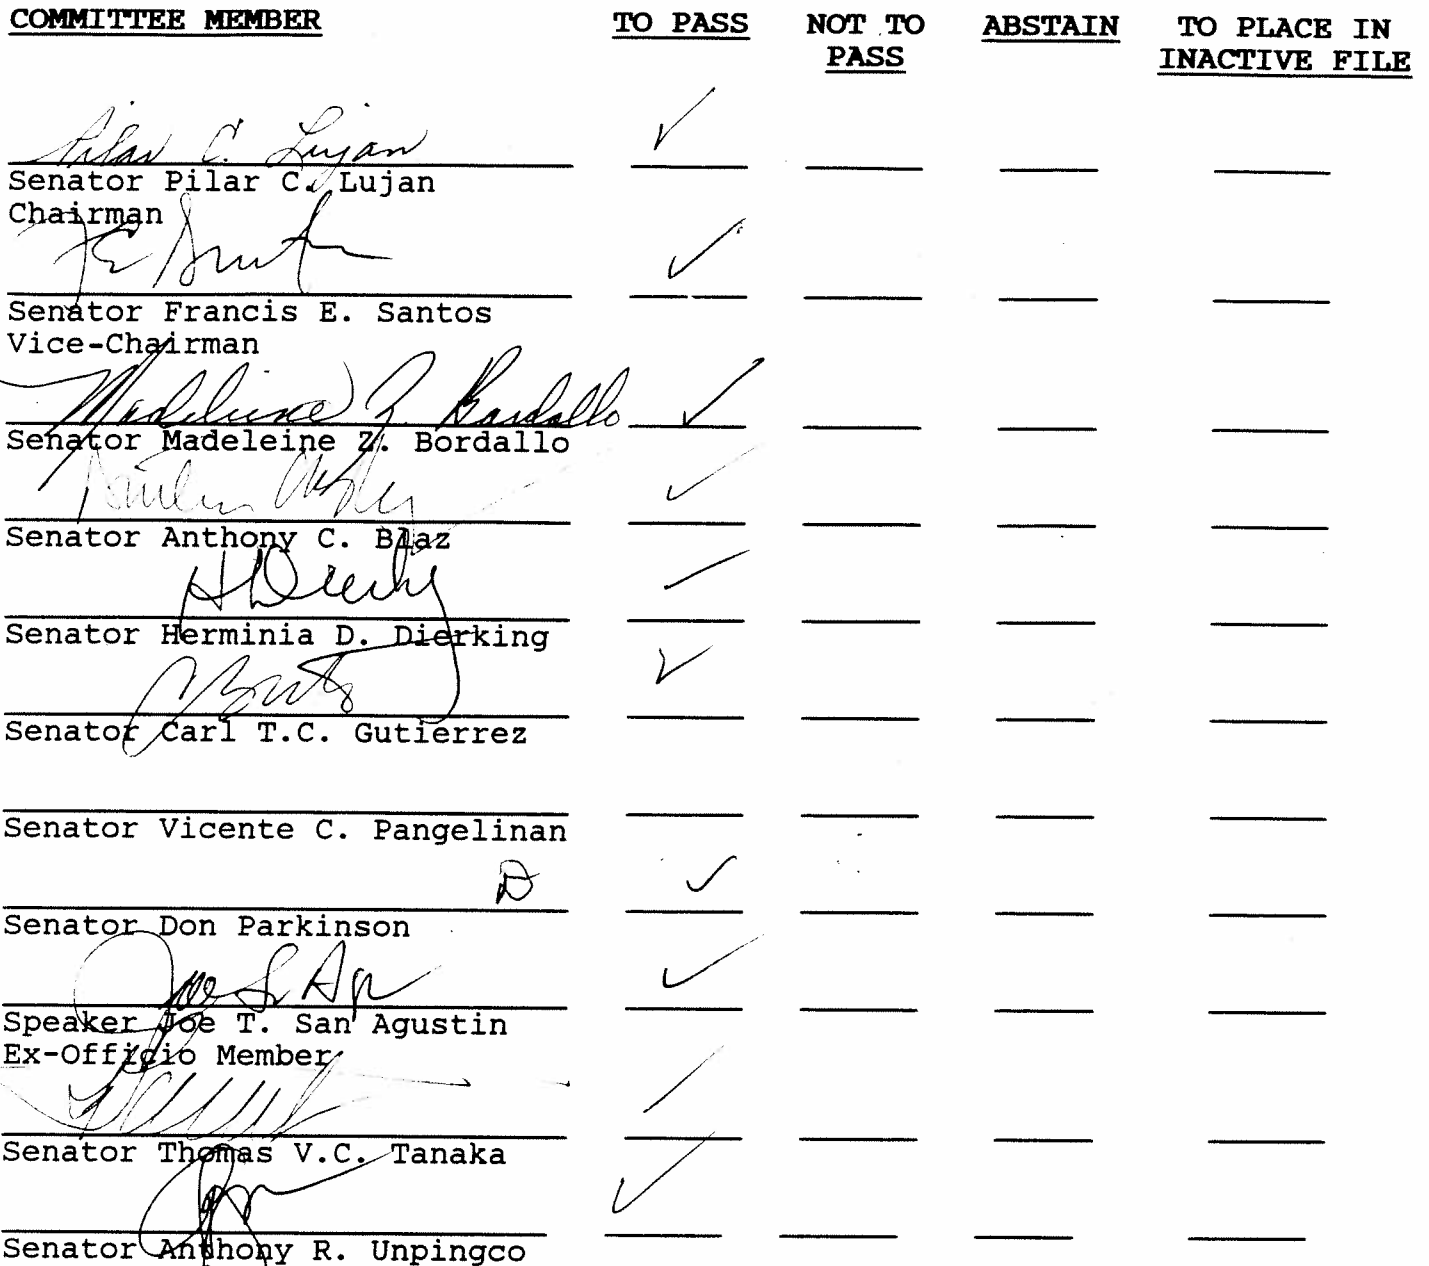 COMMITTEE MEMBER TO PASS NOT TO PASS ABSTAIN TO PLACE IN INACTIVE FILE
Pilar C. Lujan ✓
Senator Pilar C. Lujan
Chairman
✓
Senator Francis E. Santos
Vice-Chairman
Madeleine Z. Bordallo ✓
Senator Madeleine Z. Bordallo
✓
Senator Anthony C. Blaz
Senator Herminia D. Dierking
✓
Senator Carl T.C. Gutierrez
Senator Vicente C. Pangelinan
✓
Senator Don Parkinson
✓
Speaker Joe T. San Agustin
Ex-Officio Member
Senator Thomas V.C. Tanaka
✓
Senator Anthony R. Unpingco